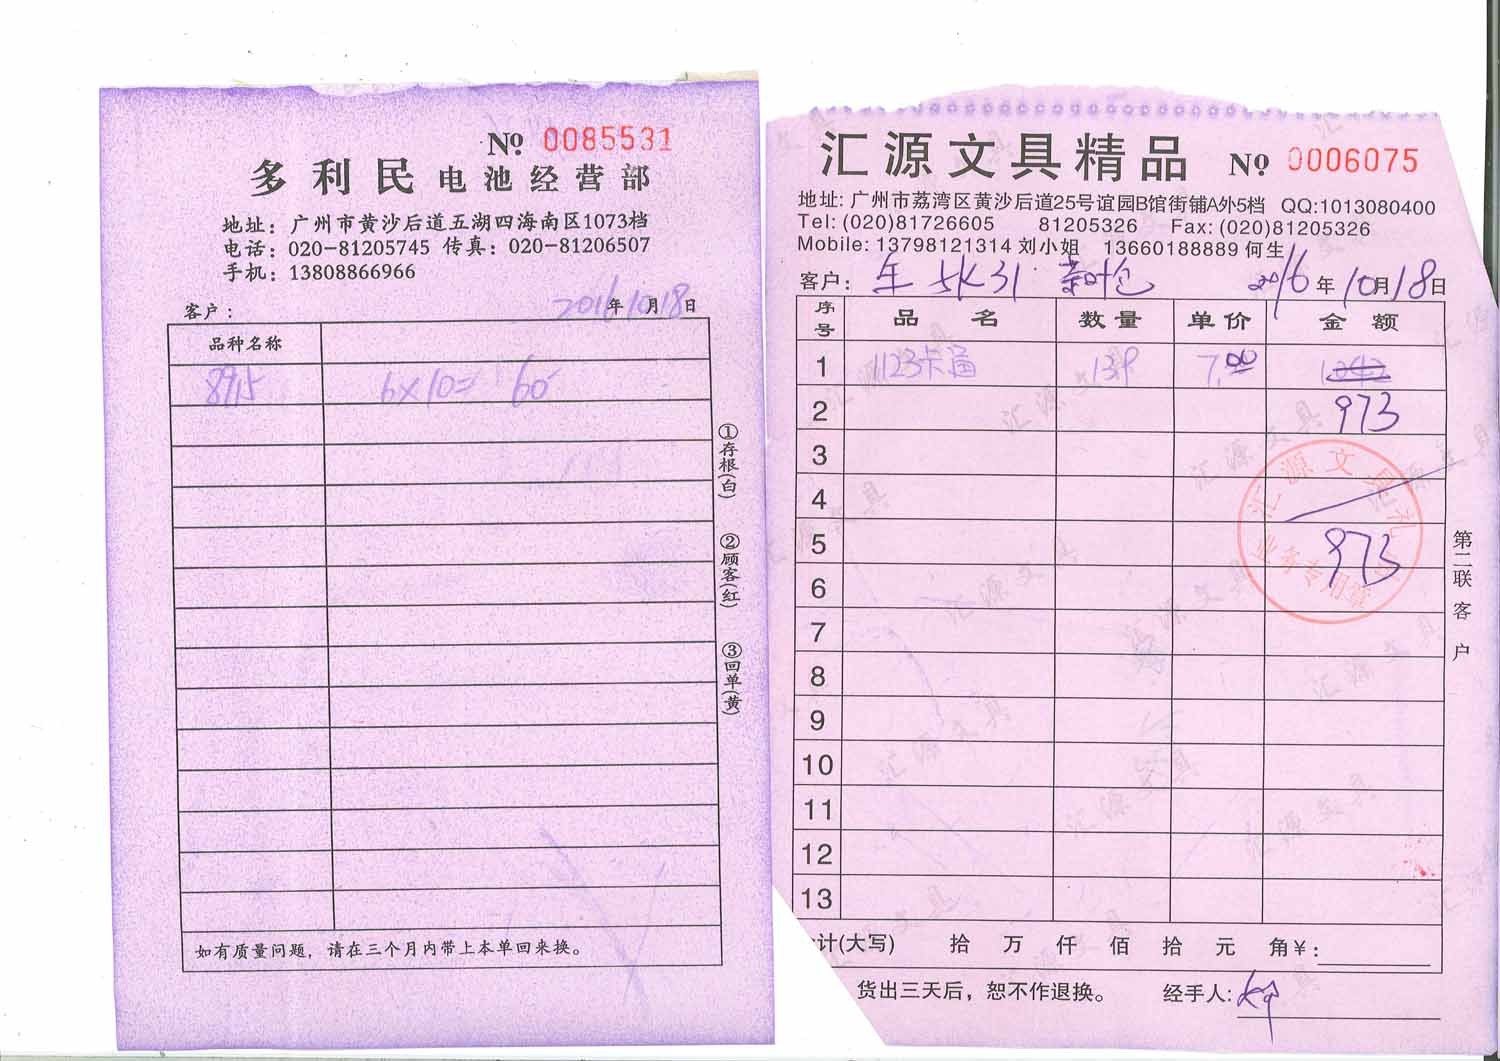 № 0085531
多利民电池经营部
地址：广州市黄沙后道五湖四海南区1073档
电话：020-81205745 传真：020-81206507
手机：13808866966
客户： 2016年10月18日
品种名称
8915 6×10=60
①存根(白)
②顾客(红)
③回单(黄)
如有质量问题，请在三个月内带上本单回来换。
汇源文具精品 № 0006075
地址:广州市荔湾区黄沙后道25号谊园B馆街铺A外5档 QQ:1013080400
Tel:(020)81726605 81205326 Fax:(020)81205326
Mobile:13798121314 刘小姐 13660188889 何生
客户: 2016年10月18日
序号 品名 数量 单价 金额
1 1123卡通 139 7.00
2 973
3
4
5 973
6
7
8
9
10
11
12
13
汇源文具礼
业务专用章
第二联客户
计(大写) 拾 万 仟 佰 拾 元 角¥:
货出三天后，恕不作退换。 经手人: